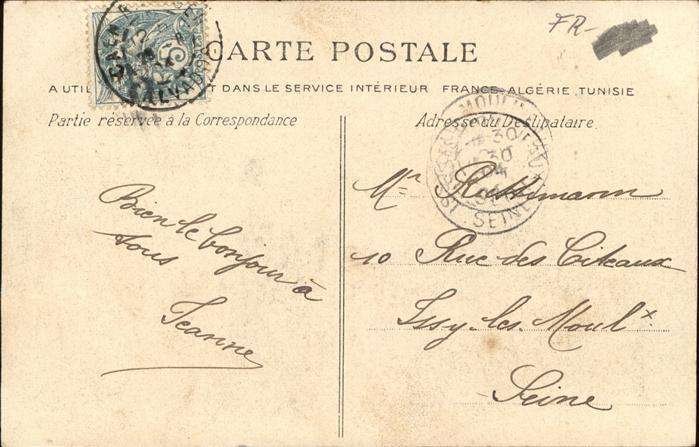 FR-
CARTE POSTALE
A UTIL T DANS LE SERVICE INTÉRIEUR FRANCE-ALGÉRIE, TUNISIE
Partie réservée à la Correspondance
Adresse du Destinataire
CALVADOS
SEINE
30
Bien le bonjour à
tous
Jeanne
Mr Ruttimann
10 Rue des Citeaux
Issy-les-Moulx
Seine